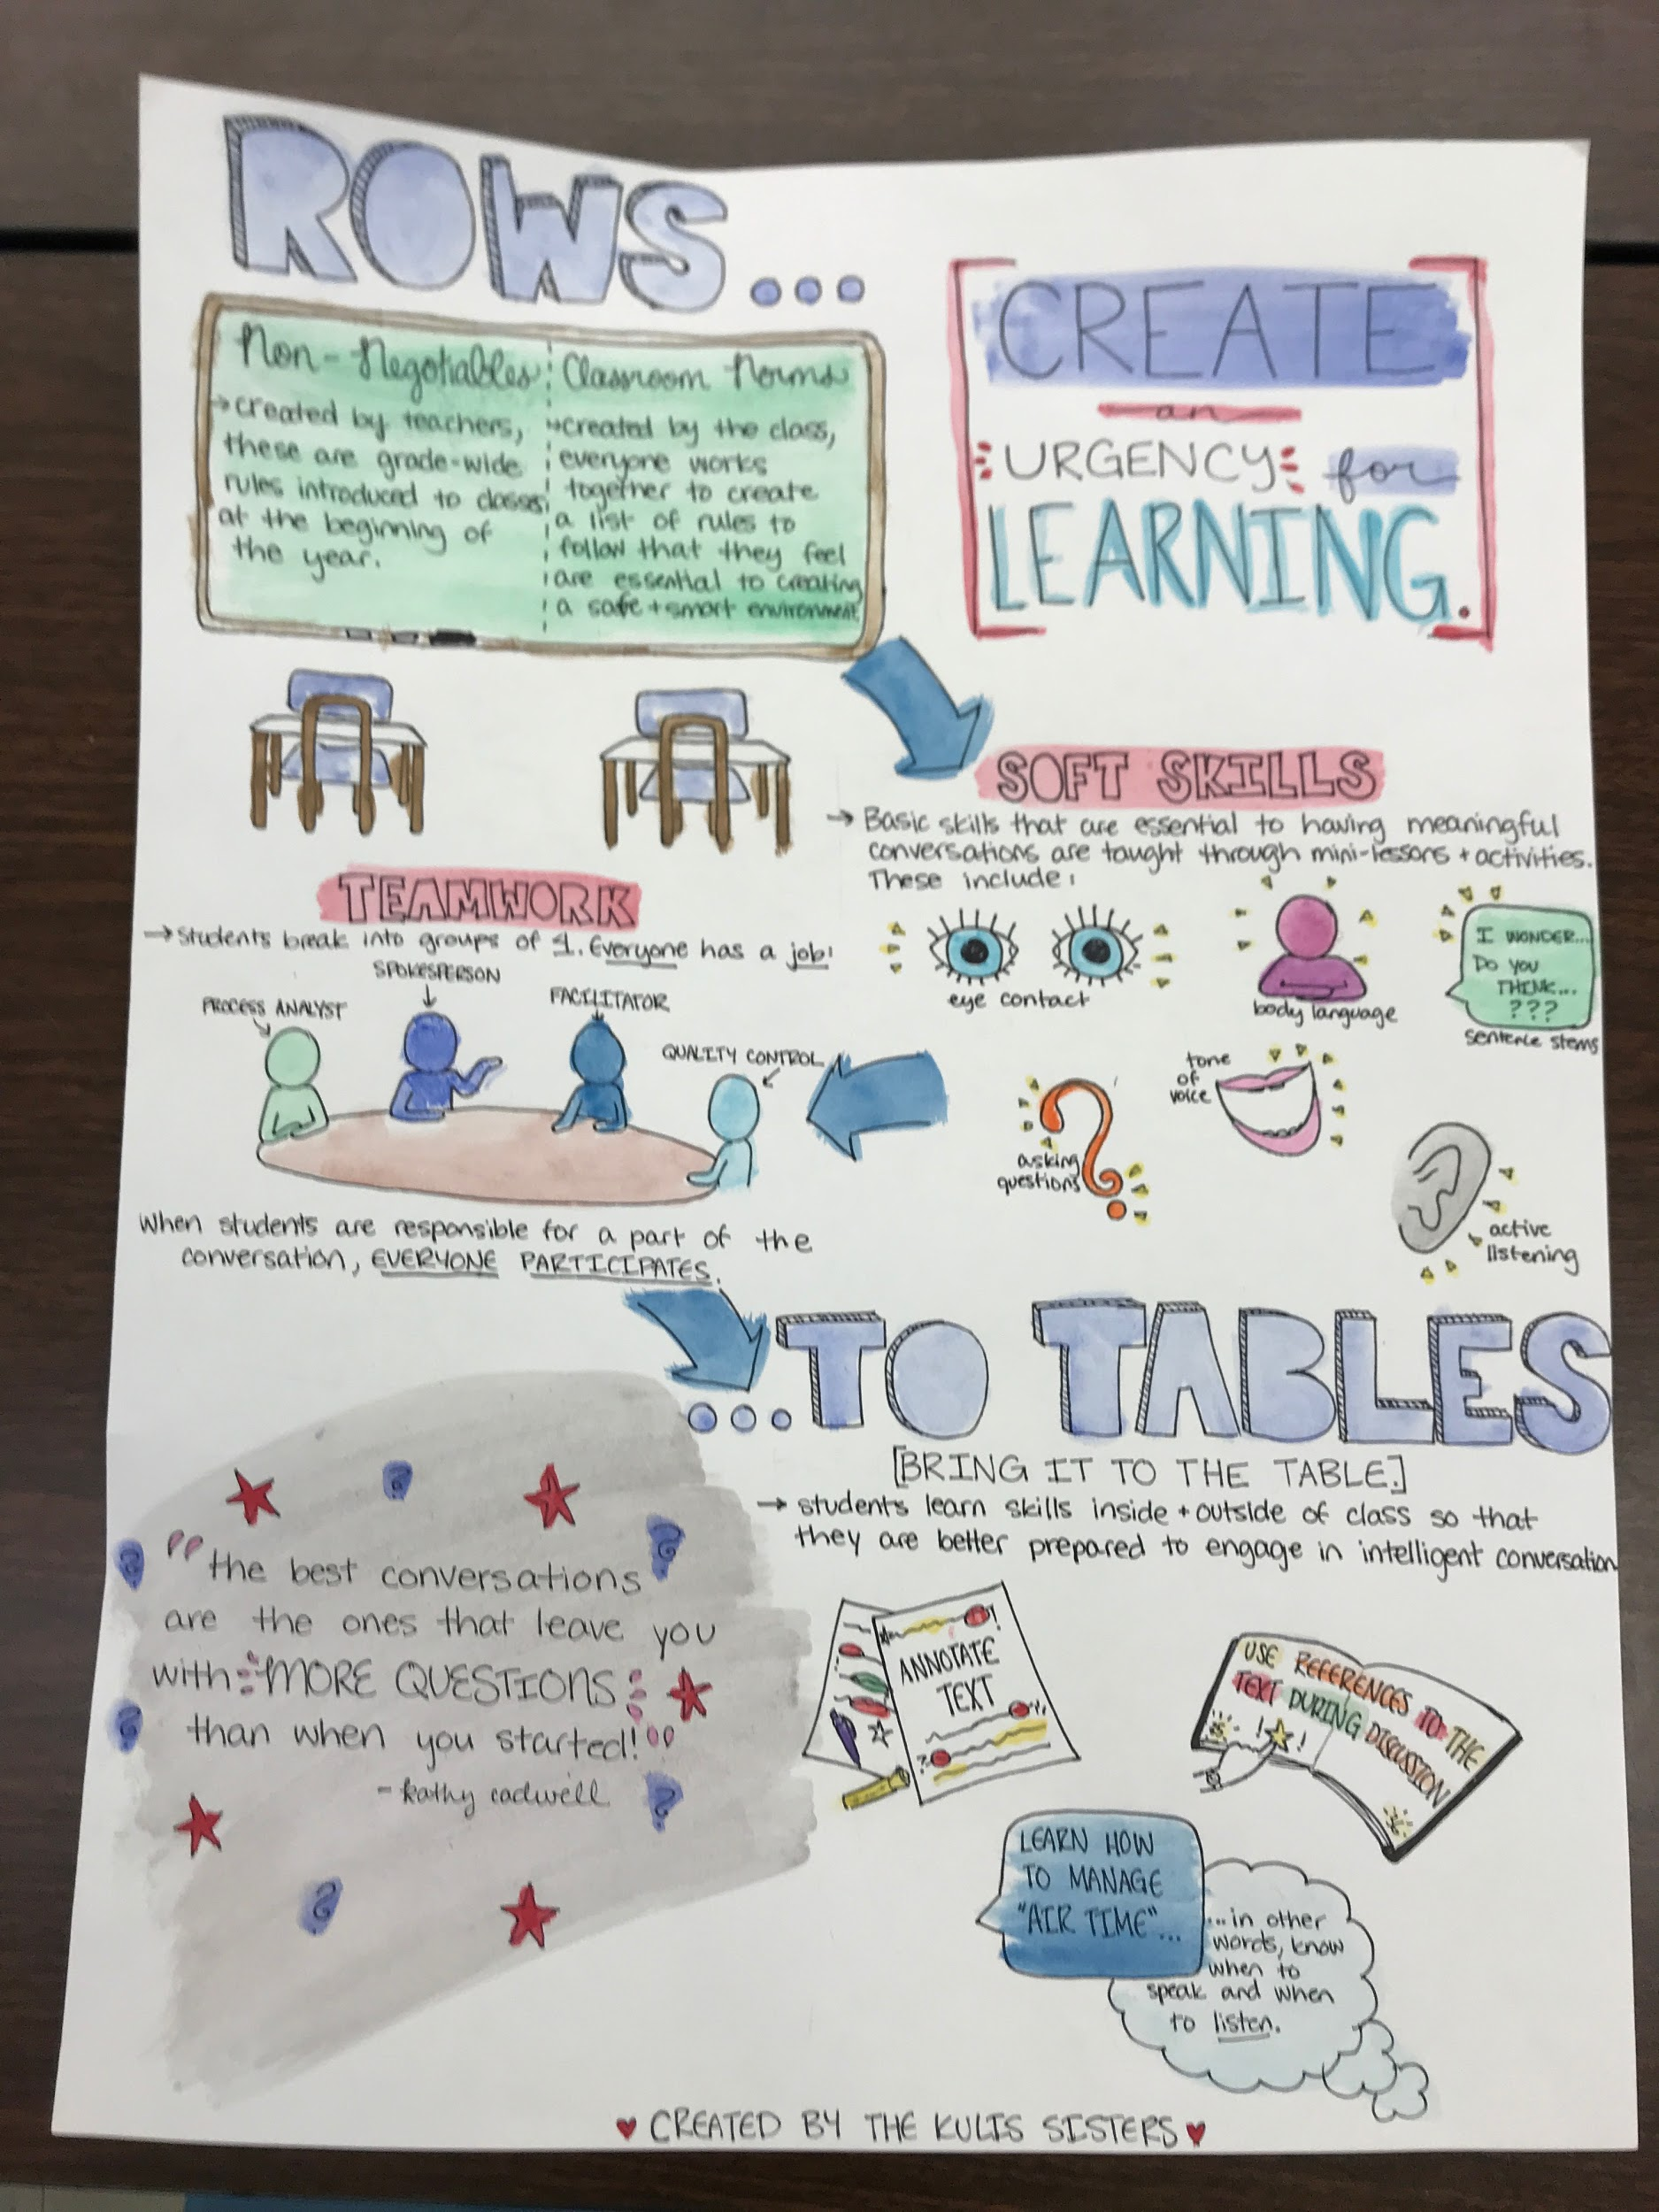 ROWS...
Non-Negotiables
→created by teachers,
these are grade-wide
rules introduced to classes
at the beginning of
the year.
Classroom Norms
→created by the class,
everyone works
together to create
a list of rules to
follow that they feel
are essential to creating
a safe + smart environment
CREATE
an
URGENCY for
LEARNING.
SOFT SKILLS
→ Basic skills that are essential to having meaningful
conversations are taught through mini-lessons + activities.
These include:
eye contact
body language
I WONDER...
DO YOU
THINK...
???
sentence stems
tone
of
voice
asking
questions
active
listening
TEAMWORK
→Students break into groups of 4. Everyone has a job:
PROCESS ANALYST
SPOKESPERSON
FACILITATOR
QUALITY CONTROL
When students are responsible for a part of the
conversation, EVERYONE PARTICIPATES.
...TO TABLES
[BRING IT TO THE TABLE.]
→ students learn skills inside + outside of class so that
they are better prepared to engage in intelligent conversation
"the best conversations
are the ones that leave you
with MORE QUESTIONS
than when you started!"
- kathy cadwell
ANNOTATE
TEXT
USE REFERENCES TO THE
TEXT DURING DISCUSSION
LEARN HOW
TO MANAGE
"AIR TIME"...
...in other
words, know
when to
speak and when
to listen.
♥ CREATED BY THE KULIS SISTERS ♥